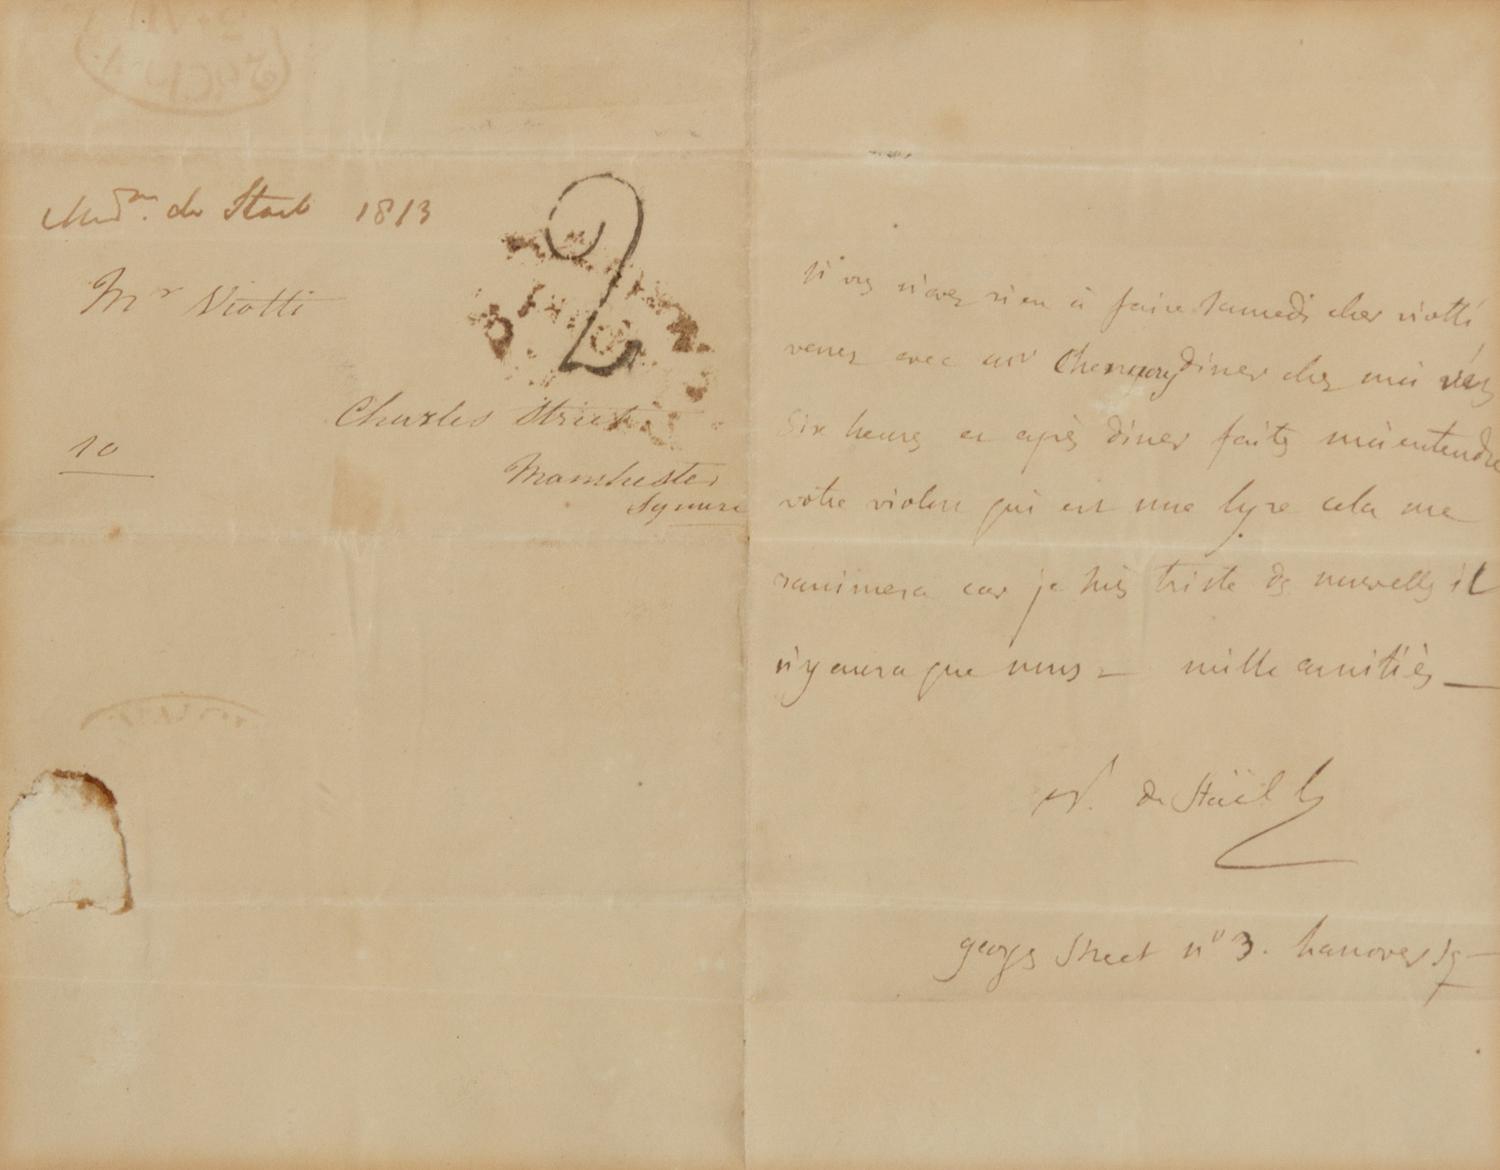 Mdm. de Stael 1813
Mr Viotti
2
Charles Street
10
Manchester
Square
si vs n'avez rien à faire samedi cher viotti
venez avec mr Chennery diner chez moi vers
six heures et après diner faites moi entendre
votre violon qui est une lyre cela me
ranimera car je suis triste des nouvelles il
n'y aura que nous — mille amitiés —
N. de Staël h
george Street n° 3. hanover sq —